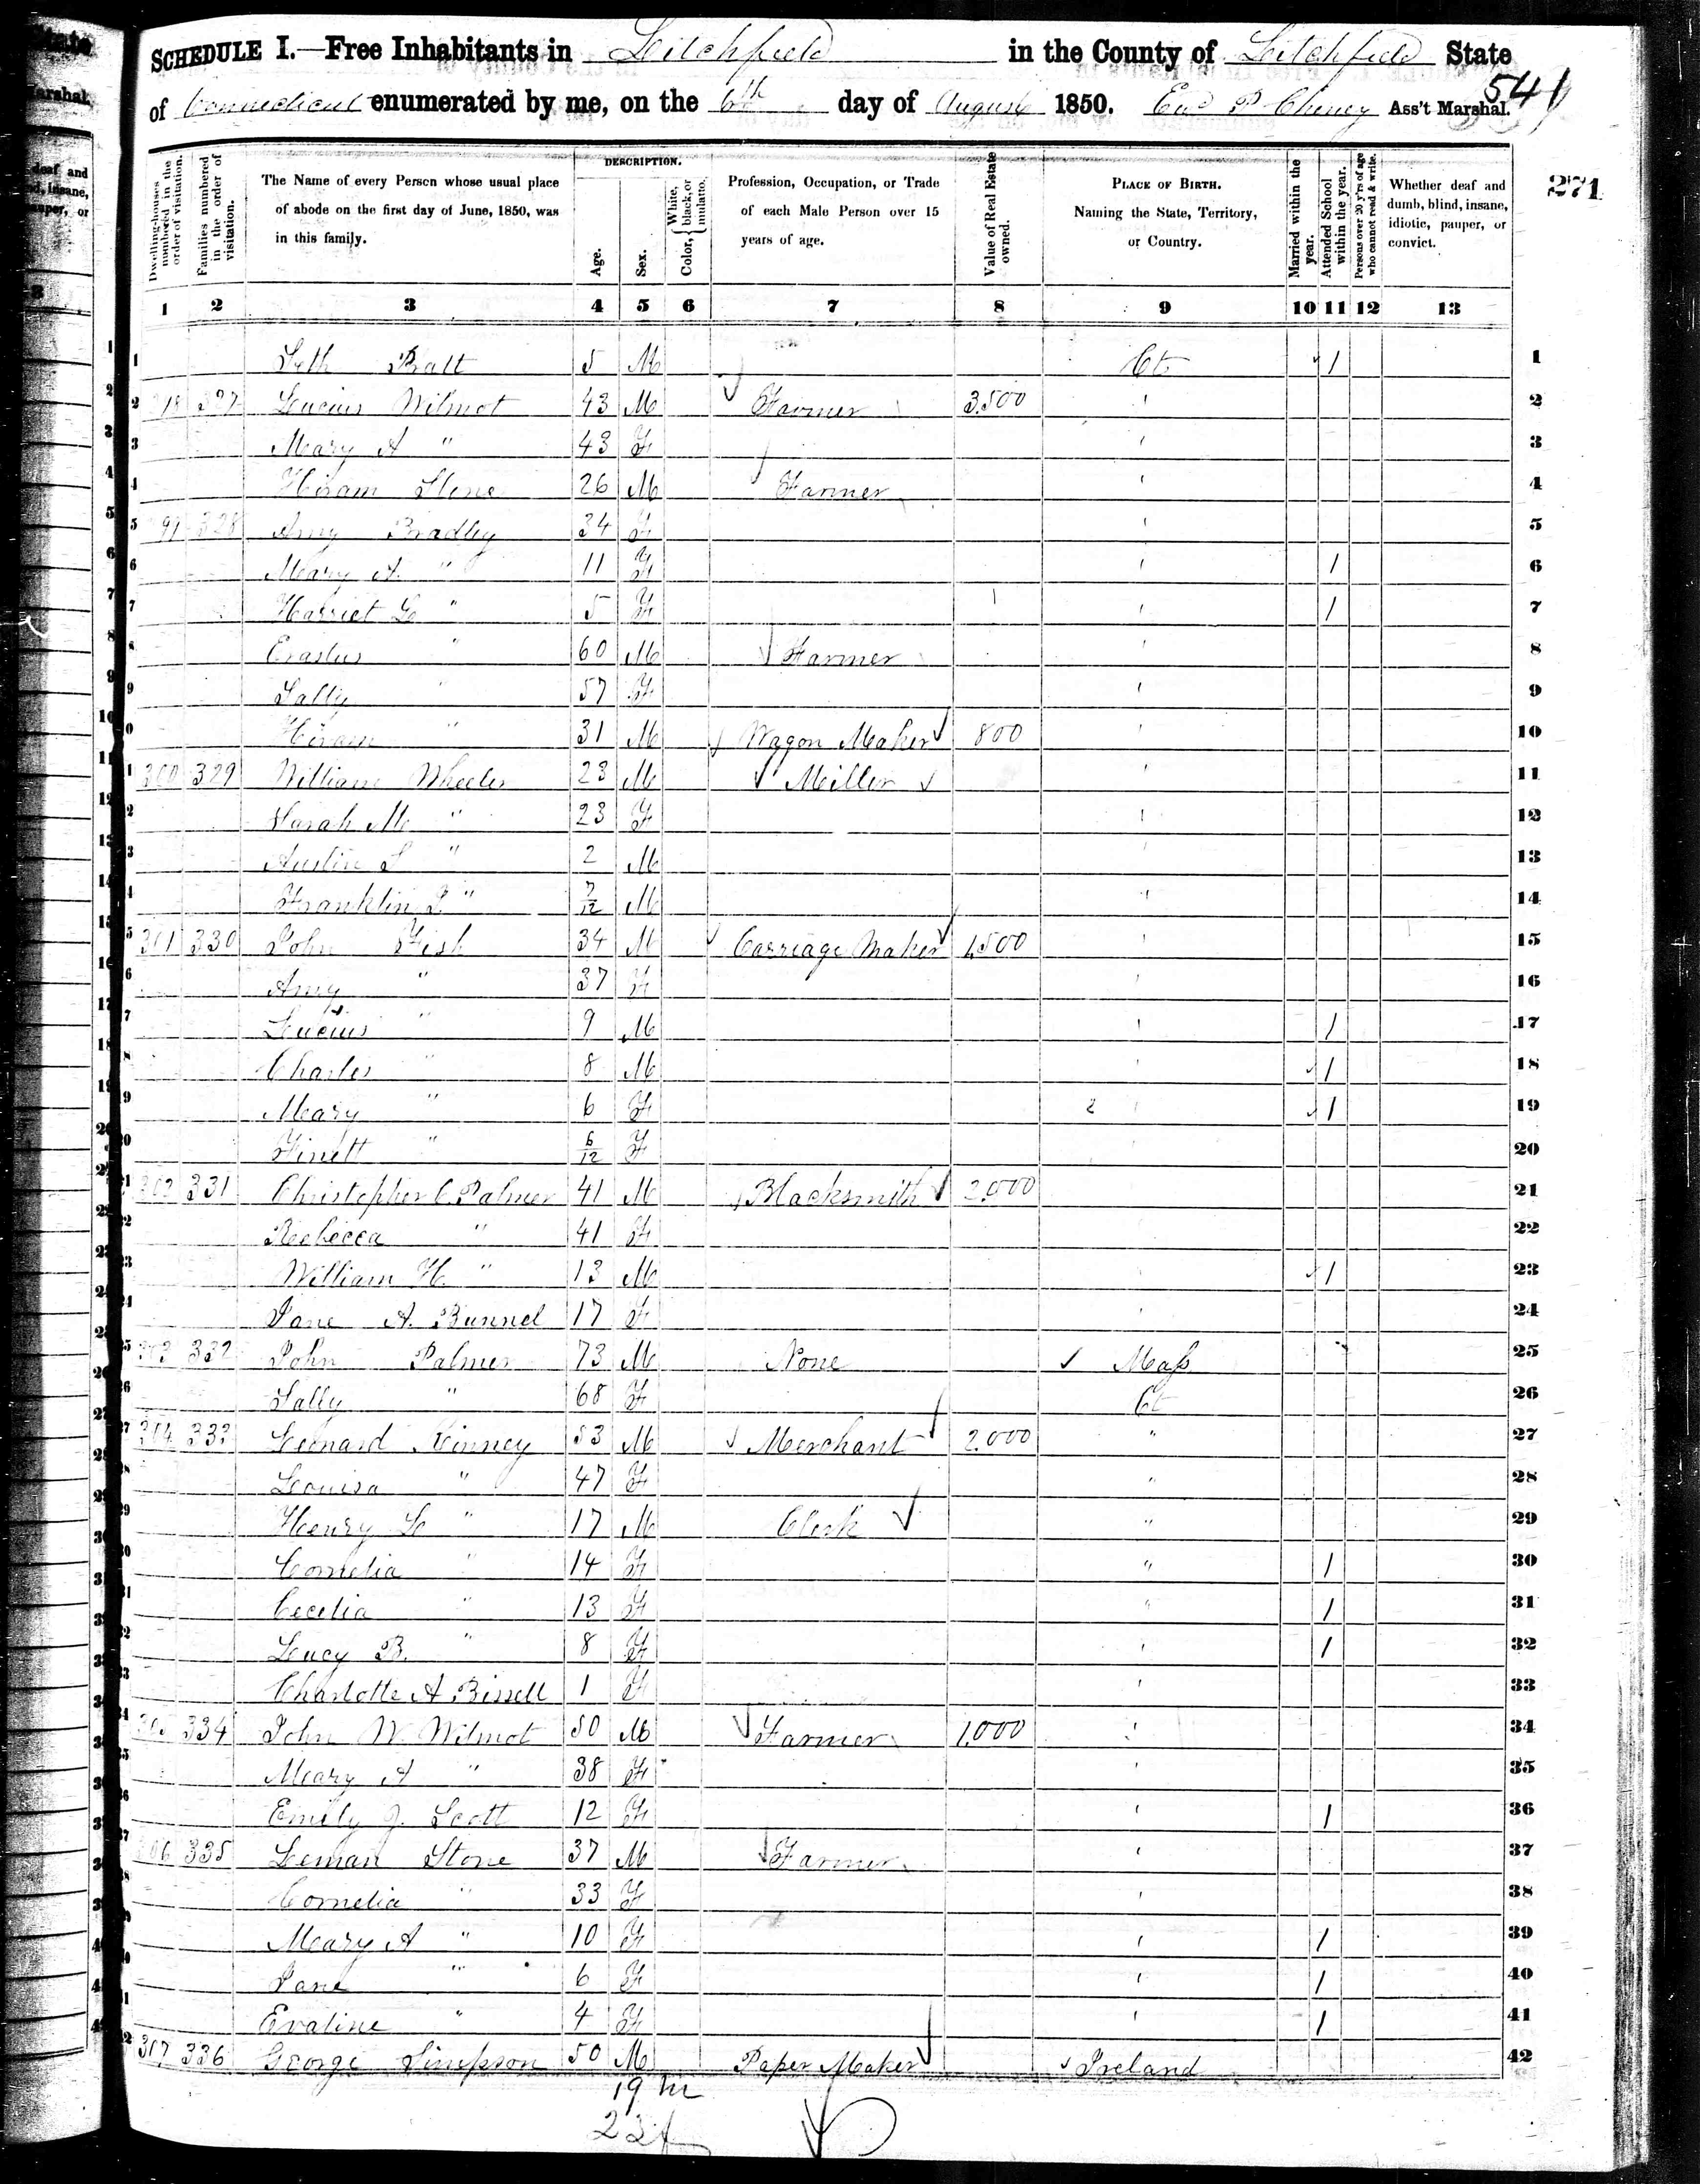 SCHEDULE I.—Free Inhabitants in Litchfield in the County of Litchfield State
of Connecticut enumerated by me, on the 6th day of August 1850. P Cheney Ass't Marshal.
541
271
Dwelling-houses numbered in the order of visitation.
Families numbered in the order of visitation.
The Name of every Person whose usual place of abode on the first day of June, 1850, was in this family.
DESCRIPTION.
Age.
Sex.
Color, { White, black, or mulatto.
Profession, Occupation, or Trade of each Male Person over 15 years of age.
Value of Real Estate owned.
PLACE OF BIRTH. Naming the State, Territory, or Country.
Married within the year.
Attended School within the year.
Persons over 20 y'rs of age who cannot read & write.
Whether deaf and dumb, blind, insane, idiotic, pauper, or convict.
1 2 3 4 5 6 7 8 9 10 11 12 13
1 Seth Pratt 5 M Ct 1 1
2 327 Lucius Wilmot 43 M Farmer 3.500 ' 2
3 Mary A " 43 F ' 3
4 Hiram Stone 26 M Farmer ' 4
5 328 Amy Bradley 34 F ' 5
6 Mary A. " 11 F ' 1 6
7 Harriet " 5 F ' 1 7
8 Erastus " 60 M Farmer ' 8
9 Sally " 57 F ' 9
10 Hiram " 31 M Wagon Maker 800 ' 10
11 300 329 William Wheeler 23 M Miller ' 11
12 Sarah M. " 23 F ' 12
13 Austin S " 2 M ' 13
14 Franklin " 7/12 M ' 14
15 301 330 John Fish 34 M Carriage Maker 1,500 ' 15
16 Amy " 37 F ' 16
17 Lucius " 9 M ' 1 17
18 Charles " 8 M ' 1 18
19 Mary " 6 F ' 1 19
20 " 6/12 F ' 20
21 302 331 Christopher C. Palmer 41 M Blacksmith 2.000 21
22 Rebecca " 41 F 22
23 William H. " 13 M ' 1 23
24 Jane A. Bunnel 17 F ' 24
25 303 332 John Palmer 73 M None Mass 25
26 Sally " 68 F Ct 26
27 304 333 Leonard Kinney 53 M Merchant 2.000 " 27
28 Louisa " 47 F " 28
29 Henry " 17 M Clerk " 29
30 Cornelia " 14 F " 1 30
31 Cecelia " 13 F " 1 31
32 Lucy B. " 8 F ' 1 32
33 Charlotte A Bissell 1 F ' 33
34 305 334 John W Wilmot 50 M Farmer 1.000 ' 34
35 Mary A " 38 F ' 35
36 Emily J. Scott 12 F ' 1 36
37 306 335 Leman Stone 37 M Farmer ' 37
38 Cornelia " 33 F ' 38
39 Mary A " 10 F ' 1 39
40 Jane " 6 F ' 1 40
41 Evaline " 4 F ' 1 41
42 307 336 George Simpson 50 M Paper Maker Ireland 42
19 m
23 f